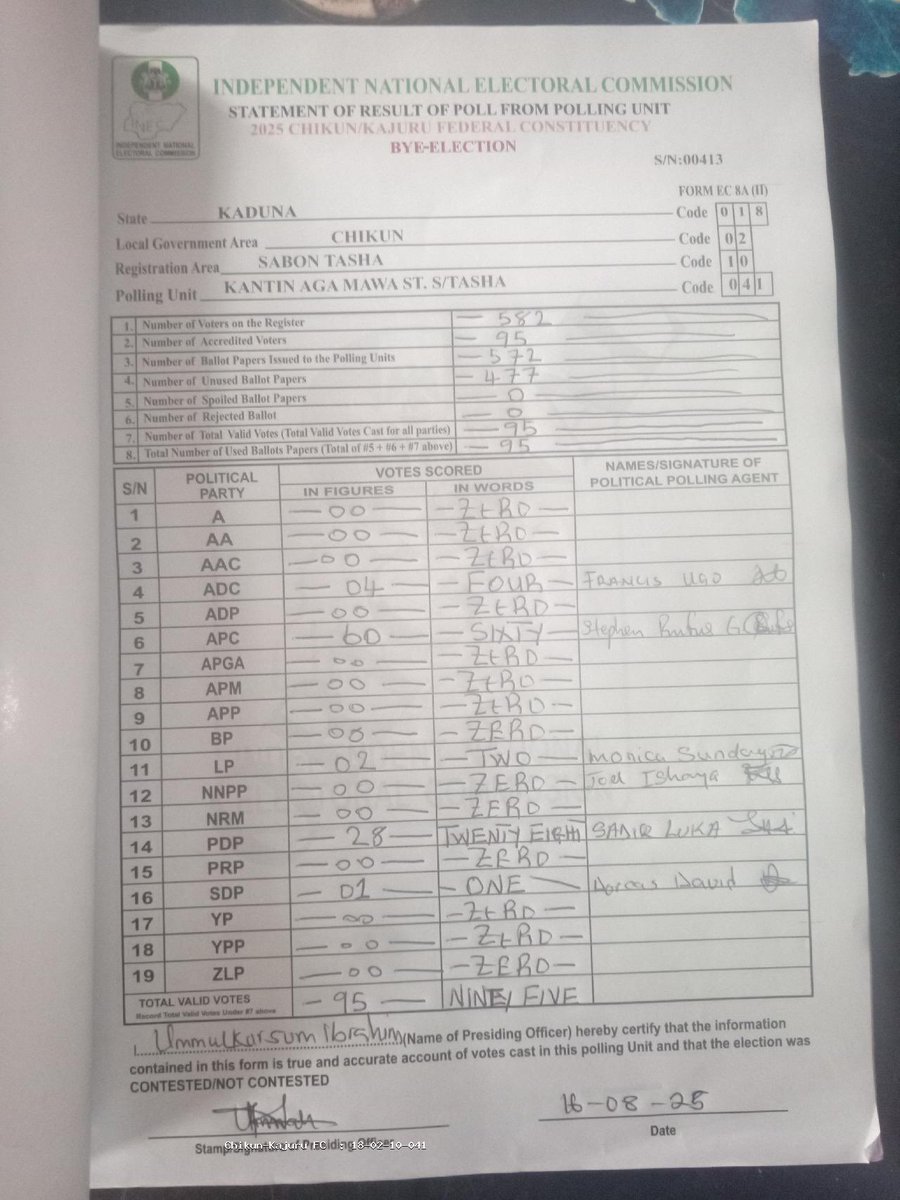 INEC
INDEPENDENT NATIONAL
ELECTORAL COMMISSION
INDEPENDENT NATIONAL ELECTORAL COMMISSION
STATEMENT OF RESULT OF POLL FROM POLLING UNIT
2025 CHIKUN/KAJURU FEDERAL CONSTITUENCY
BYE-ELECTION
S/N:00413
FORM EC 8A (II)
State KADUNA Code 018
Local Government Area CHIKUN Code 02
Registration Area SABON TASHA Code 10
Polling Unit KANTIN AGA MAWA ST. S/TASHA Code 041
1. Number of Voters on the Register — 582
2. Number of Accredited Voters — 95
3. Number of Ballot Papers Issued to the Polling Units — 572
4. Number of Unused Ballot Papers — 477
5. Number of Spoiled Ballot Papers — 0
6. Number of Rejected Ballot — 0
7. Number of Total Valid Votes (Total Valid Votes Cast for all parties) — 95
8. Total Number of Used Ballots Papers (Total of #5 + #6 + #7 above) — 95
S/N POLITICAL PARTY VOTES SCORED NAMES/SIGNATURE OF POLITICAL POLLING AGENT
IN FIGURES IN WORDS
1 A — 00 — — ZERO —
2 AA — 00 — — ZERO —
3 AAC — 00 — — ZERO —
4 ADC — 04 — — FOUR — FRANCIS UGO
5 ADP — 00 — — ZERO —
6 APC — 60 — — SIXTY — Stephen Rufus G
7 APGA — 00 — — ZERO —
8 APM — 00 — — ZERO —
9 APP — 00 — — ZERO —
10 BP — 00 — — ZERO —
11 LP — 02 — — TWO — Monica Sunday
12 NNPP — 00 — — ZERO — Joel Ishaya
13 NRM — 00 — — ZERO —
14 PDP — 28 — TWENTY EIGHT SADIQ LUKA
15 PRP — 00 — — ZERO —
16 SDP — 01 — — ONE — Dorcas David
17 YP — 00 — — ZERO —
18 YPP — 00 — — ZERO —
19 ZLP — 00 — — ZERO —
TOTAL VALID VOTES — 95 — NINETY FIVE
Record Total Valid Votes Under #7 above
I, Ummulkarsum Ibrahim (Name of Presiding Officer) hereby certify that the information
contained in this form is true and accurate account of votes cast in this polling Unit and that the election was
CONTESTED/NOT CONTESTED
16-08-25
Date
Chikun-Kajuru FC : 18-02-10-041